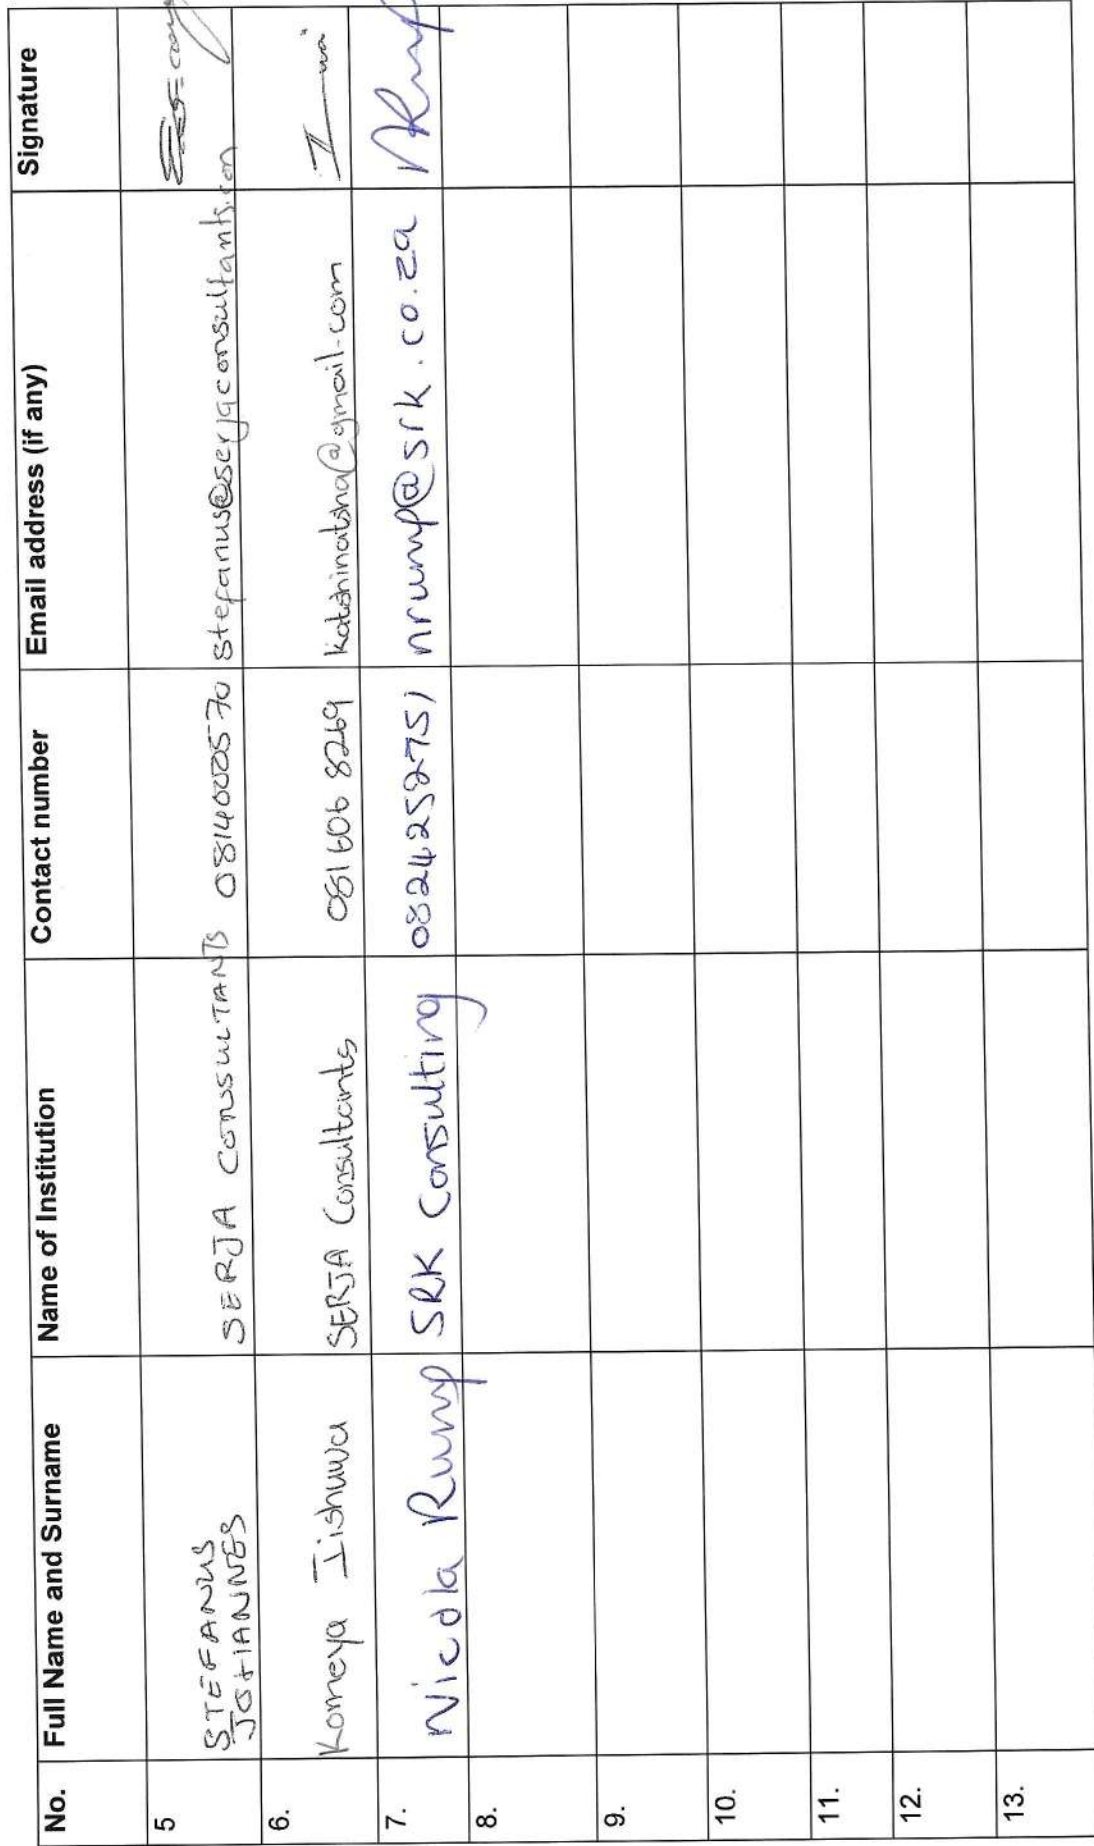 No. Full Name and Surname Name of Institution Contact number Email address (if any) Signature
5 STEFANUS
JOHANNES SERJA CONSULTANTS 0814000570 stefanus@serjaconsultants.com
6. Komeya Iishuwa SERJA Consultants 081 606 8269
7. Nicola Rump SRK Consulting 0824252751 nrump@srk.co.za
8.
9.
10.
11.
12.
13.